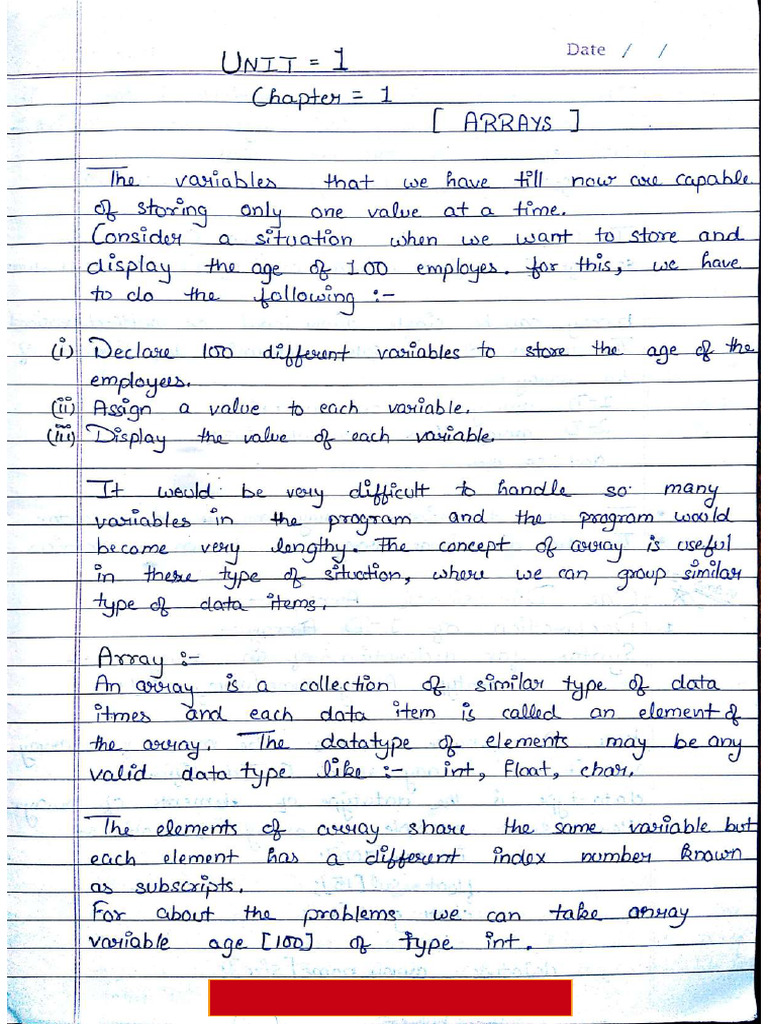 Date / /
UNIT = 1
Chapter = 1
[ ARRAYS ]
The variables that we have till now are capable
of storing only one value at a time.
Consider a situation when we want to store and
display the age of 100 employes. for this, we have
to do the following :-
(i) Declare 100 different variables to store the age of the
employees.
(ii) Assign a value to each variable.
(iii) Display the value of each variable.
It would be very difficult to handle so many
variables in the program and the program would
become very lengthy. The concept of array is useful
in there type of situction, where we can group similar
type of data items.
Array :-
An array is a collection of similar type of data
itmes and each data item is called an element of
the array. The datatype of elements may be any
valid data type like :- int, float, char.
The elements of array share the same variable but
each element has a different index number known
as subscripts.
For about the problems we can take array
variable age [100] of type int.